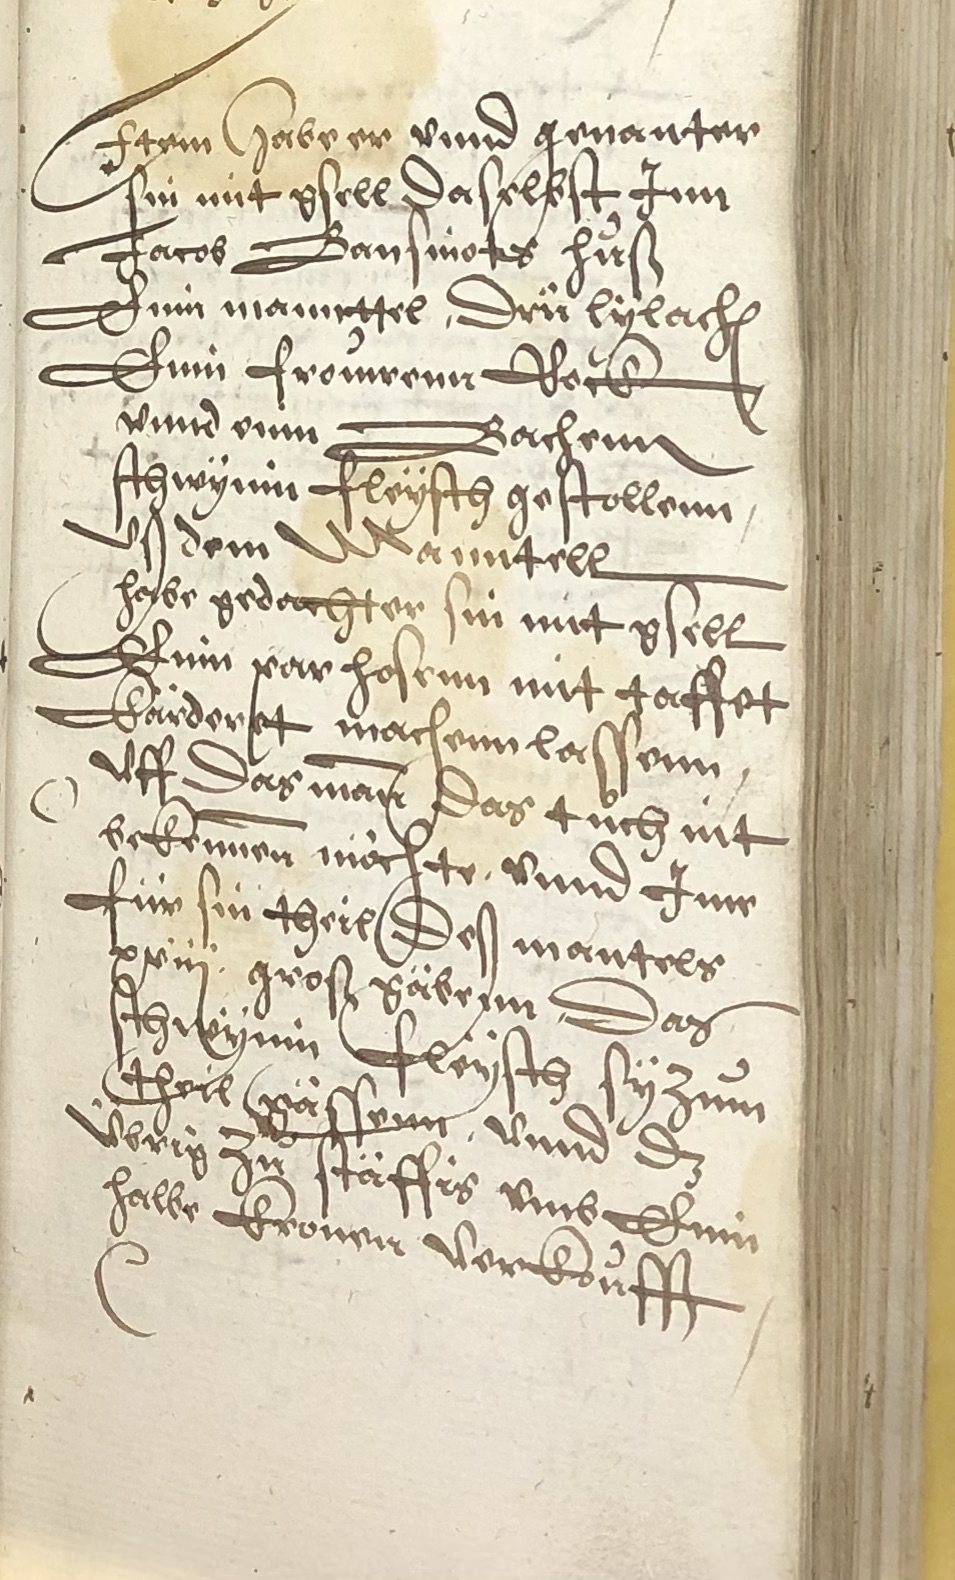 Item habe er vnnd genanter
sin mit gsell daselbst Inn
Jacob Bansmoters huß
Einn manttel, drü lylachen
Einn frouwenn Rock
vnnd einn Bachenn
schwynin fleysch gestollenn,
vß dem Manntell
habe gedachter sin mit gsell
Einn par hosenn mit taffet
kärderet machenn lassenn,
vff das man das tuch nit
bekennen möchte, vnnd Ime
für sin theil deß mantels
xviij. groß gäbenn, Das
schwynin fleysch sy zum
theil gässenn, vnnd dz
vbrig zu stäffis vmb Einn
halbe kronen verkoufft